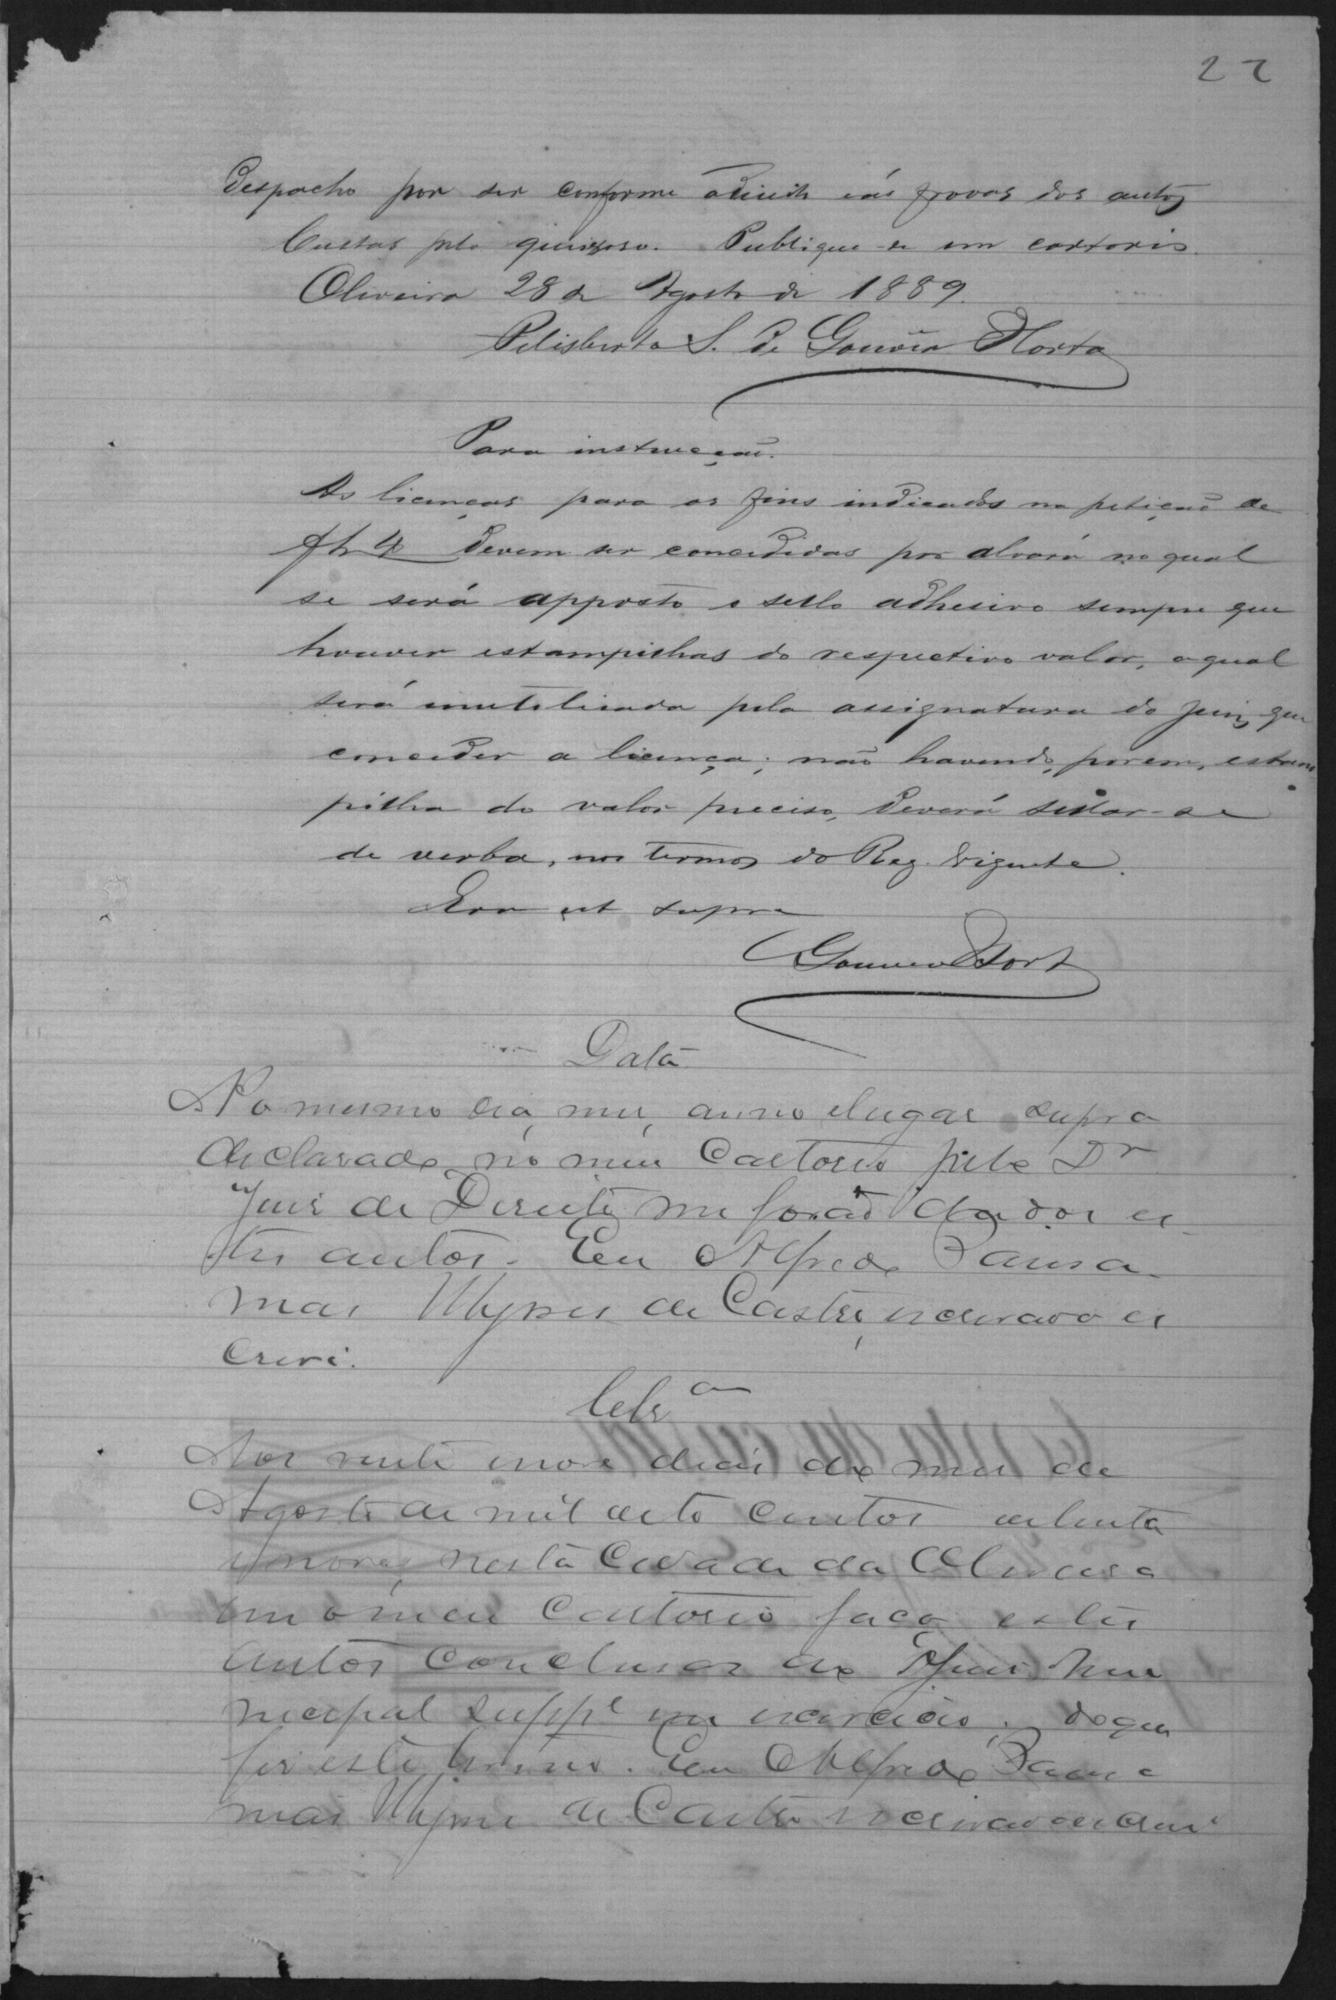 22
despacho por ser conforme a direito e ás provas dos autos
Custas pelo queixoso. Publique-se em cartorio.
Oliveira 28 de Agosto de 1889.
Felisberto S. de Gouvêa Horta
Para instrucção.
As licenças para os fins indicados na petição de
fls 4 devem ser concedidas por alvará no qual
se será apposto o sello adhesivo sempre que
houver estampilhas do respectivo valor, o qual
será inutelisada pela assignatura do Juiz que
conceder a licença; não havendo, porem, estam
pilha do valor preciso, deverá sellar-se
de verba, nos termos do Reg. Vigente.
Era ut supra
Gouvea Horta
Data
No mesmo dia, mez, anno e lugar supra
declarado, no meu Cartorio pelo Dr
Juiz de Direito me forão dados es
tes autos. Eu Alfredo
mas Ulysses de Castro, escrivão es
crevi.
Clsa
Aos vinte e nove dias do mez de
Agosto de mil oito centos oitenta
e nove, nesta Cidade da Oliveira
em o meu Cartorio faço estes
autos conclusos ao Juiz Mu
nicipal suppe em exercicio; do que
fiz este termo. Eu Alfredo
mas Ulysses de Castro escrivão escrevi